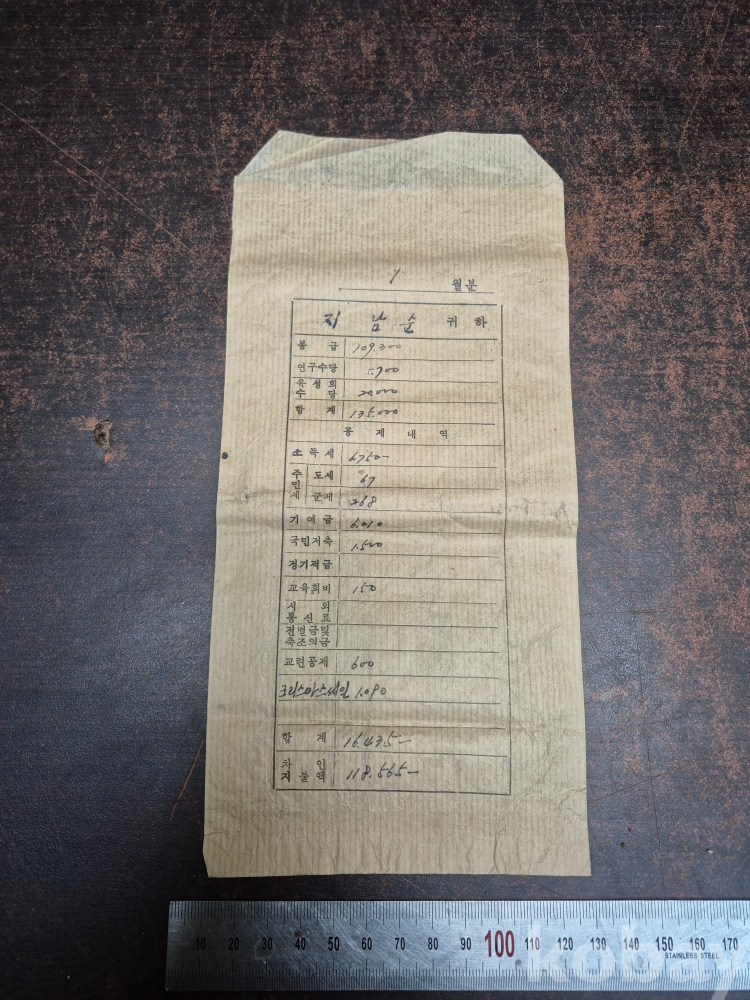 1 월분
지 남 순 귀 하
봉 급 109.300
연구수당 5.700
육성회
수 당 20.000
합 계 135.000
공 제 내 역
소 득 세 6750-
주민세 도세 67
군세 268
기 여 금 6.010
국민저축 1.500
정기적금
교육회비 150
시 외
통 신 료
전별금및
축조의금
교련공제 600
크리스마스씨일 1.090
합 계 16.435-
차 인
지 불 액 118.565-
10 20 30 40 50 60 70 80 90 100 110 120 130 140 150 160 170
STAINLESS STEEL
kobay